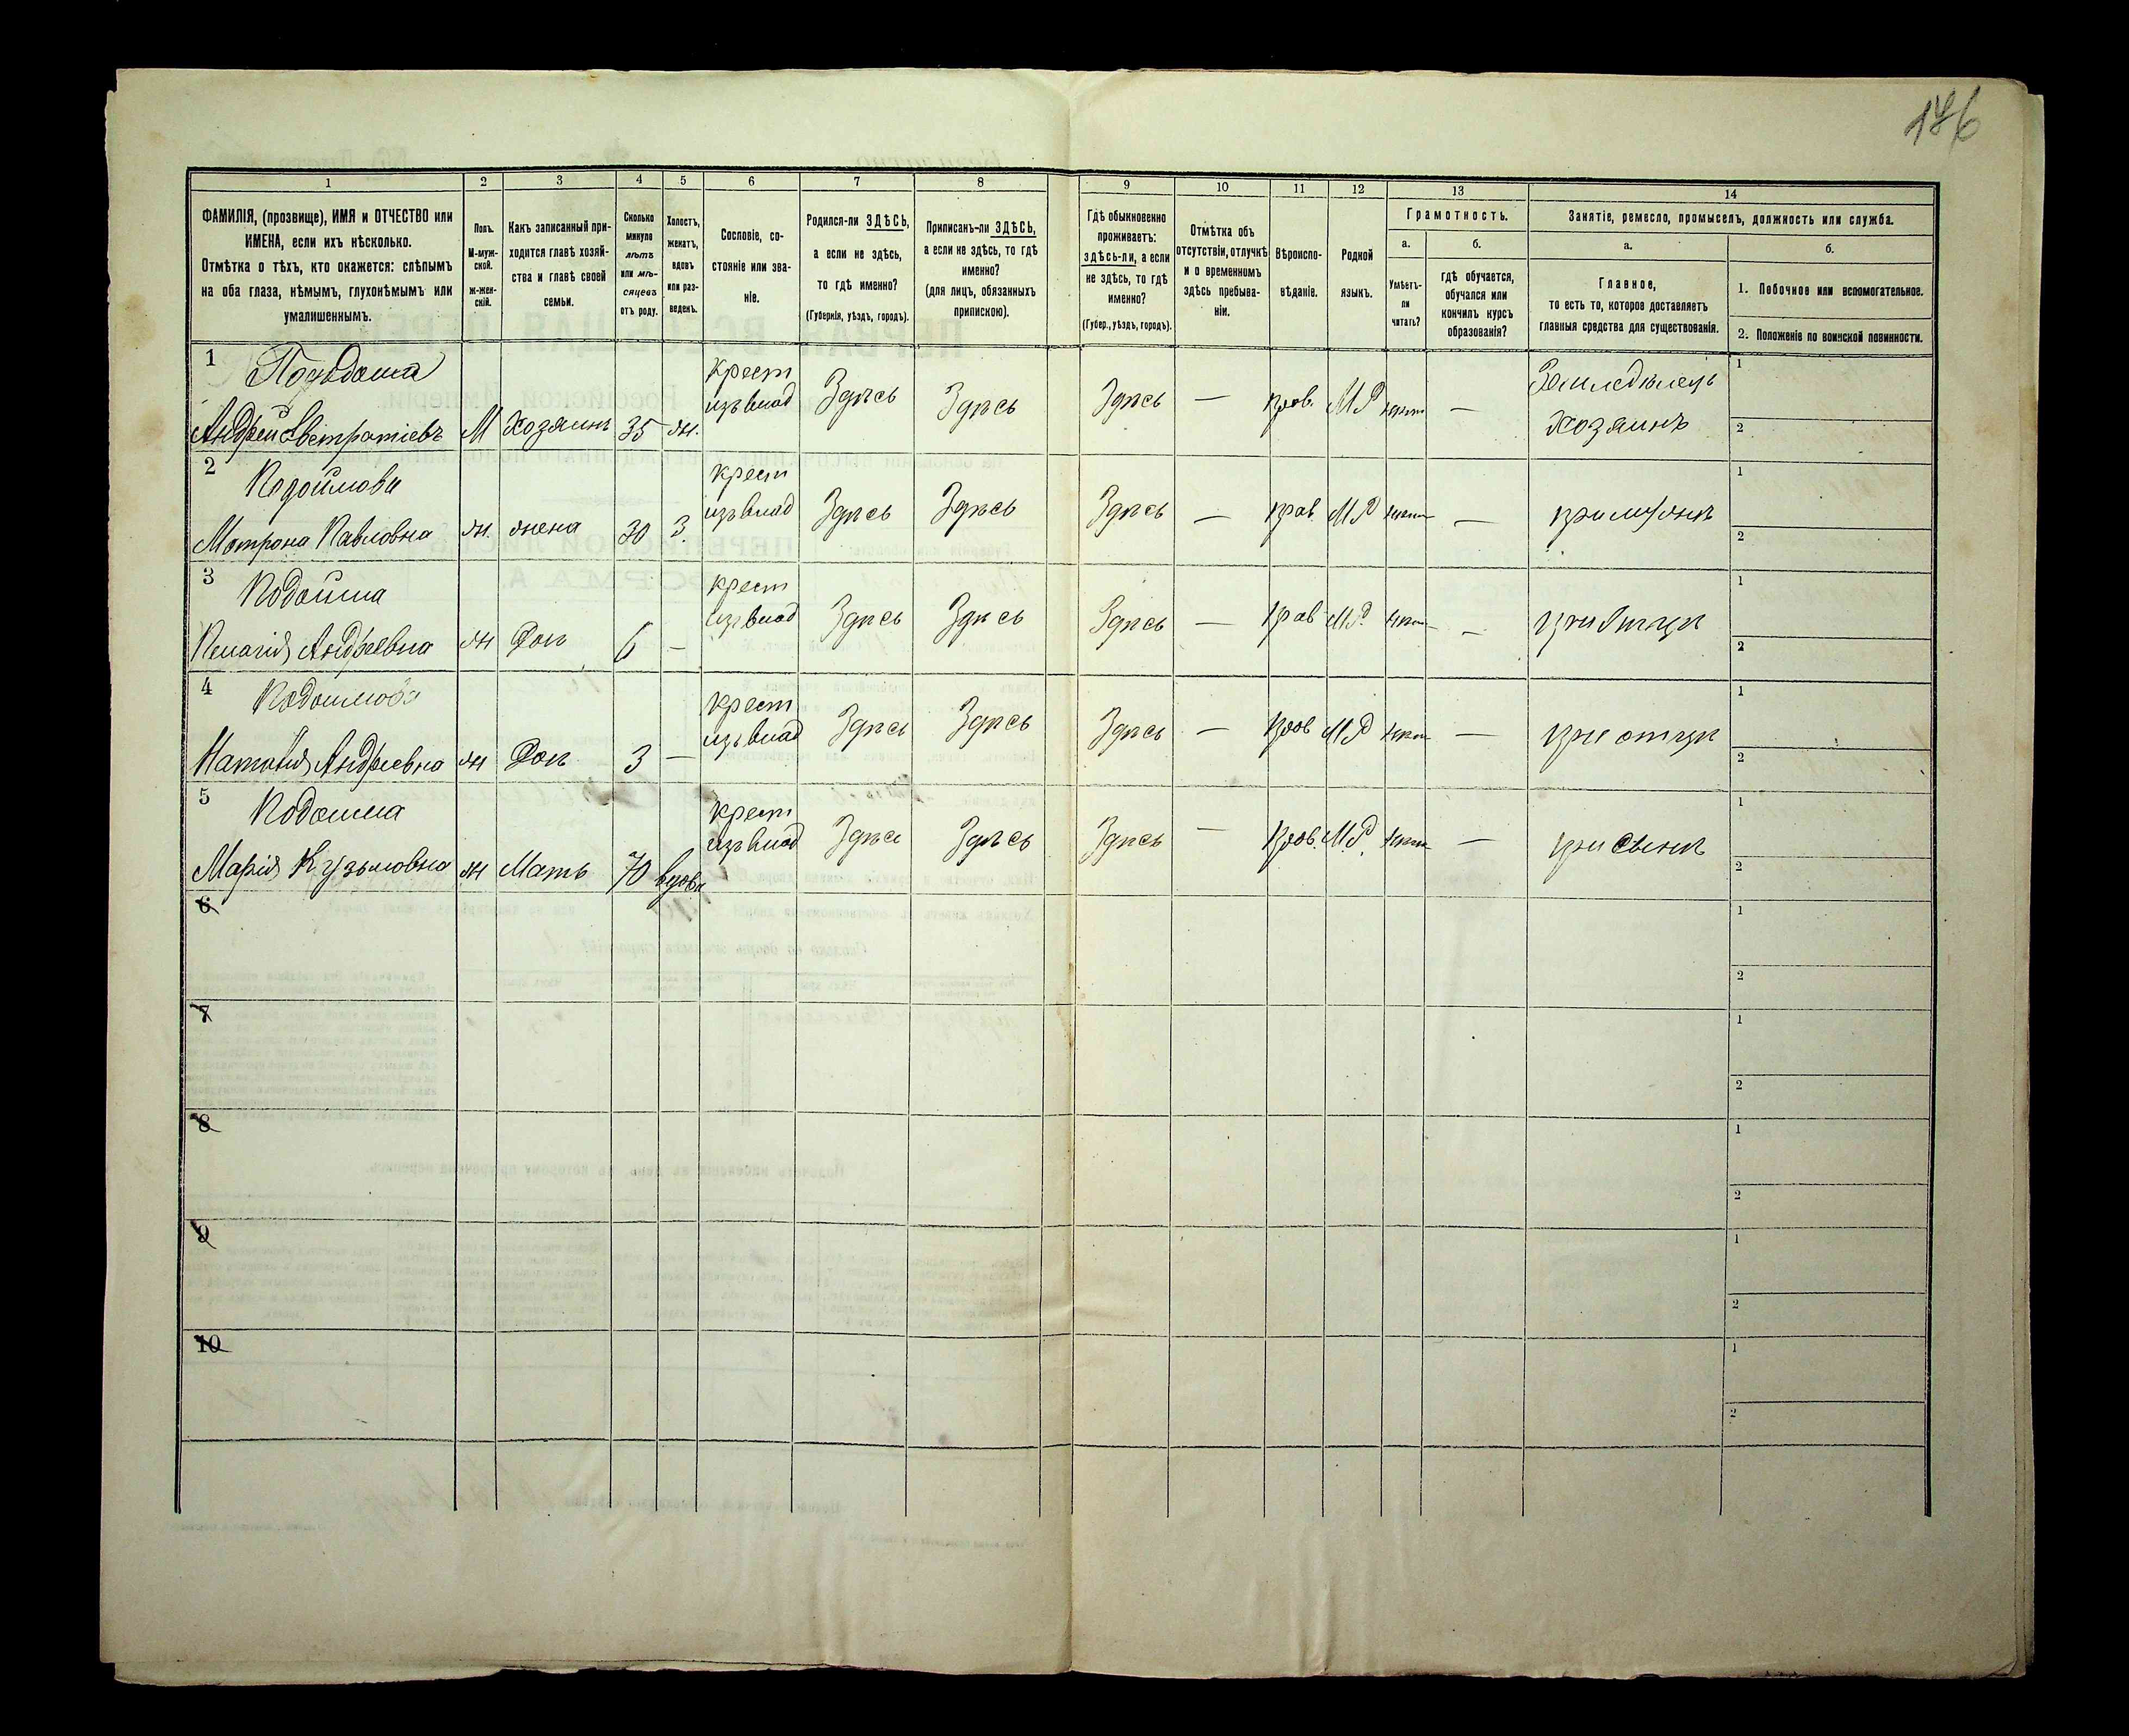 176
1 2 3 4 5 6 7 8 9 10 11 12 13 14
ФАМИЛІЯ, (прозвище), ИМЯ и ОТЧЕСТВО или
ИМЕНА, если ихъ нѣсколько.
Отмѣтка о тѣхъ, кто окажется: слѣпымъ
на оба глаза, нѣмымъ, глухонѣмымъ или
умалишеннымъ.
Полъ.
М-муж-
ской.
Ж-жен-
скій.
Какъ записанный при-
ходится главѣ хозяй-
ства и главѣ своей
семьи.
Сколько
минуло
лѣтъ
или мѣ-
сяцевъ
отъ роду.
Холостъ,
женатъ,
вдовъ
или раз-
веденъ.
Сословіе, со-
стояніе или зва-
ніе.
Родился-ли ЗДѢСЬ,
а если не здѣсь,
то гдѣ именно?
(Губернія, уѣздъ, городъ).
Приписанъ-ли ЗДѢСЬ,
а если не здѣсь, то гдѣ
именно?
(для лицъ, обязанныхъ
припискою).
Гдѣ обыкновенно
проживаетъ:
здѣсь-ли, а если
не здѣсь, то гдѣ
именно?
(Губер., уѣздъ, городъ).
Отмѣтка объ
отсутствіи, отлучкѣ
и о временномъ
здѣсь пребыва-
ніи.
Вѣроиспо-
вѣданіе.
Родной
языкъ.
Грамотность.
а.
Умѣетъ-
ли
читать?
б.
гдѣ обучается,
обучался или
кончилъ курсъ
образованія?
Занятіе, ремесло, промыселъ, должность или служба.
а.
Главное,
то есть то, которое доставляетъ
главныя средства для существованія.
б.
1. Побочное или вспомогательное.
2. Положеніе по воинской повинности.
1
крест
Земледѣлецъ
1
Андрей Евстратіевъ М Хозяинъ 35 ж. изъ влад Здѣсь Здѣсь Здѣсь — прав. МР — Хозяинъ
2
2 крест
1
Матрона Павловна ж. жена 30 З. изъ влад Здѣсь Здѣсь Здѣсь — прав. МР — при мужѣ
2
3 Подойма крест
1
Пелагія Андреевна ж Доч 6 — изъ влад Здѣсь Здѣсь Здѣсь — прав МР — при отцѣ
2
4 крест
1
Наталія Андреевна ж Доч 3 — изъ влад Здѣсь Здѣсь Здѣсь — прав МР — при отцѣ
2
5 Подойма крест
1
Марія Кузьмовна ж Мать 70 вдова изъ влад Здѣсь Здѣсь Здѣсь — прав. МР — при сынѣ
2
6 1
2
7 1
2
8 1
2
9 1
2
10 1
2